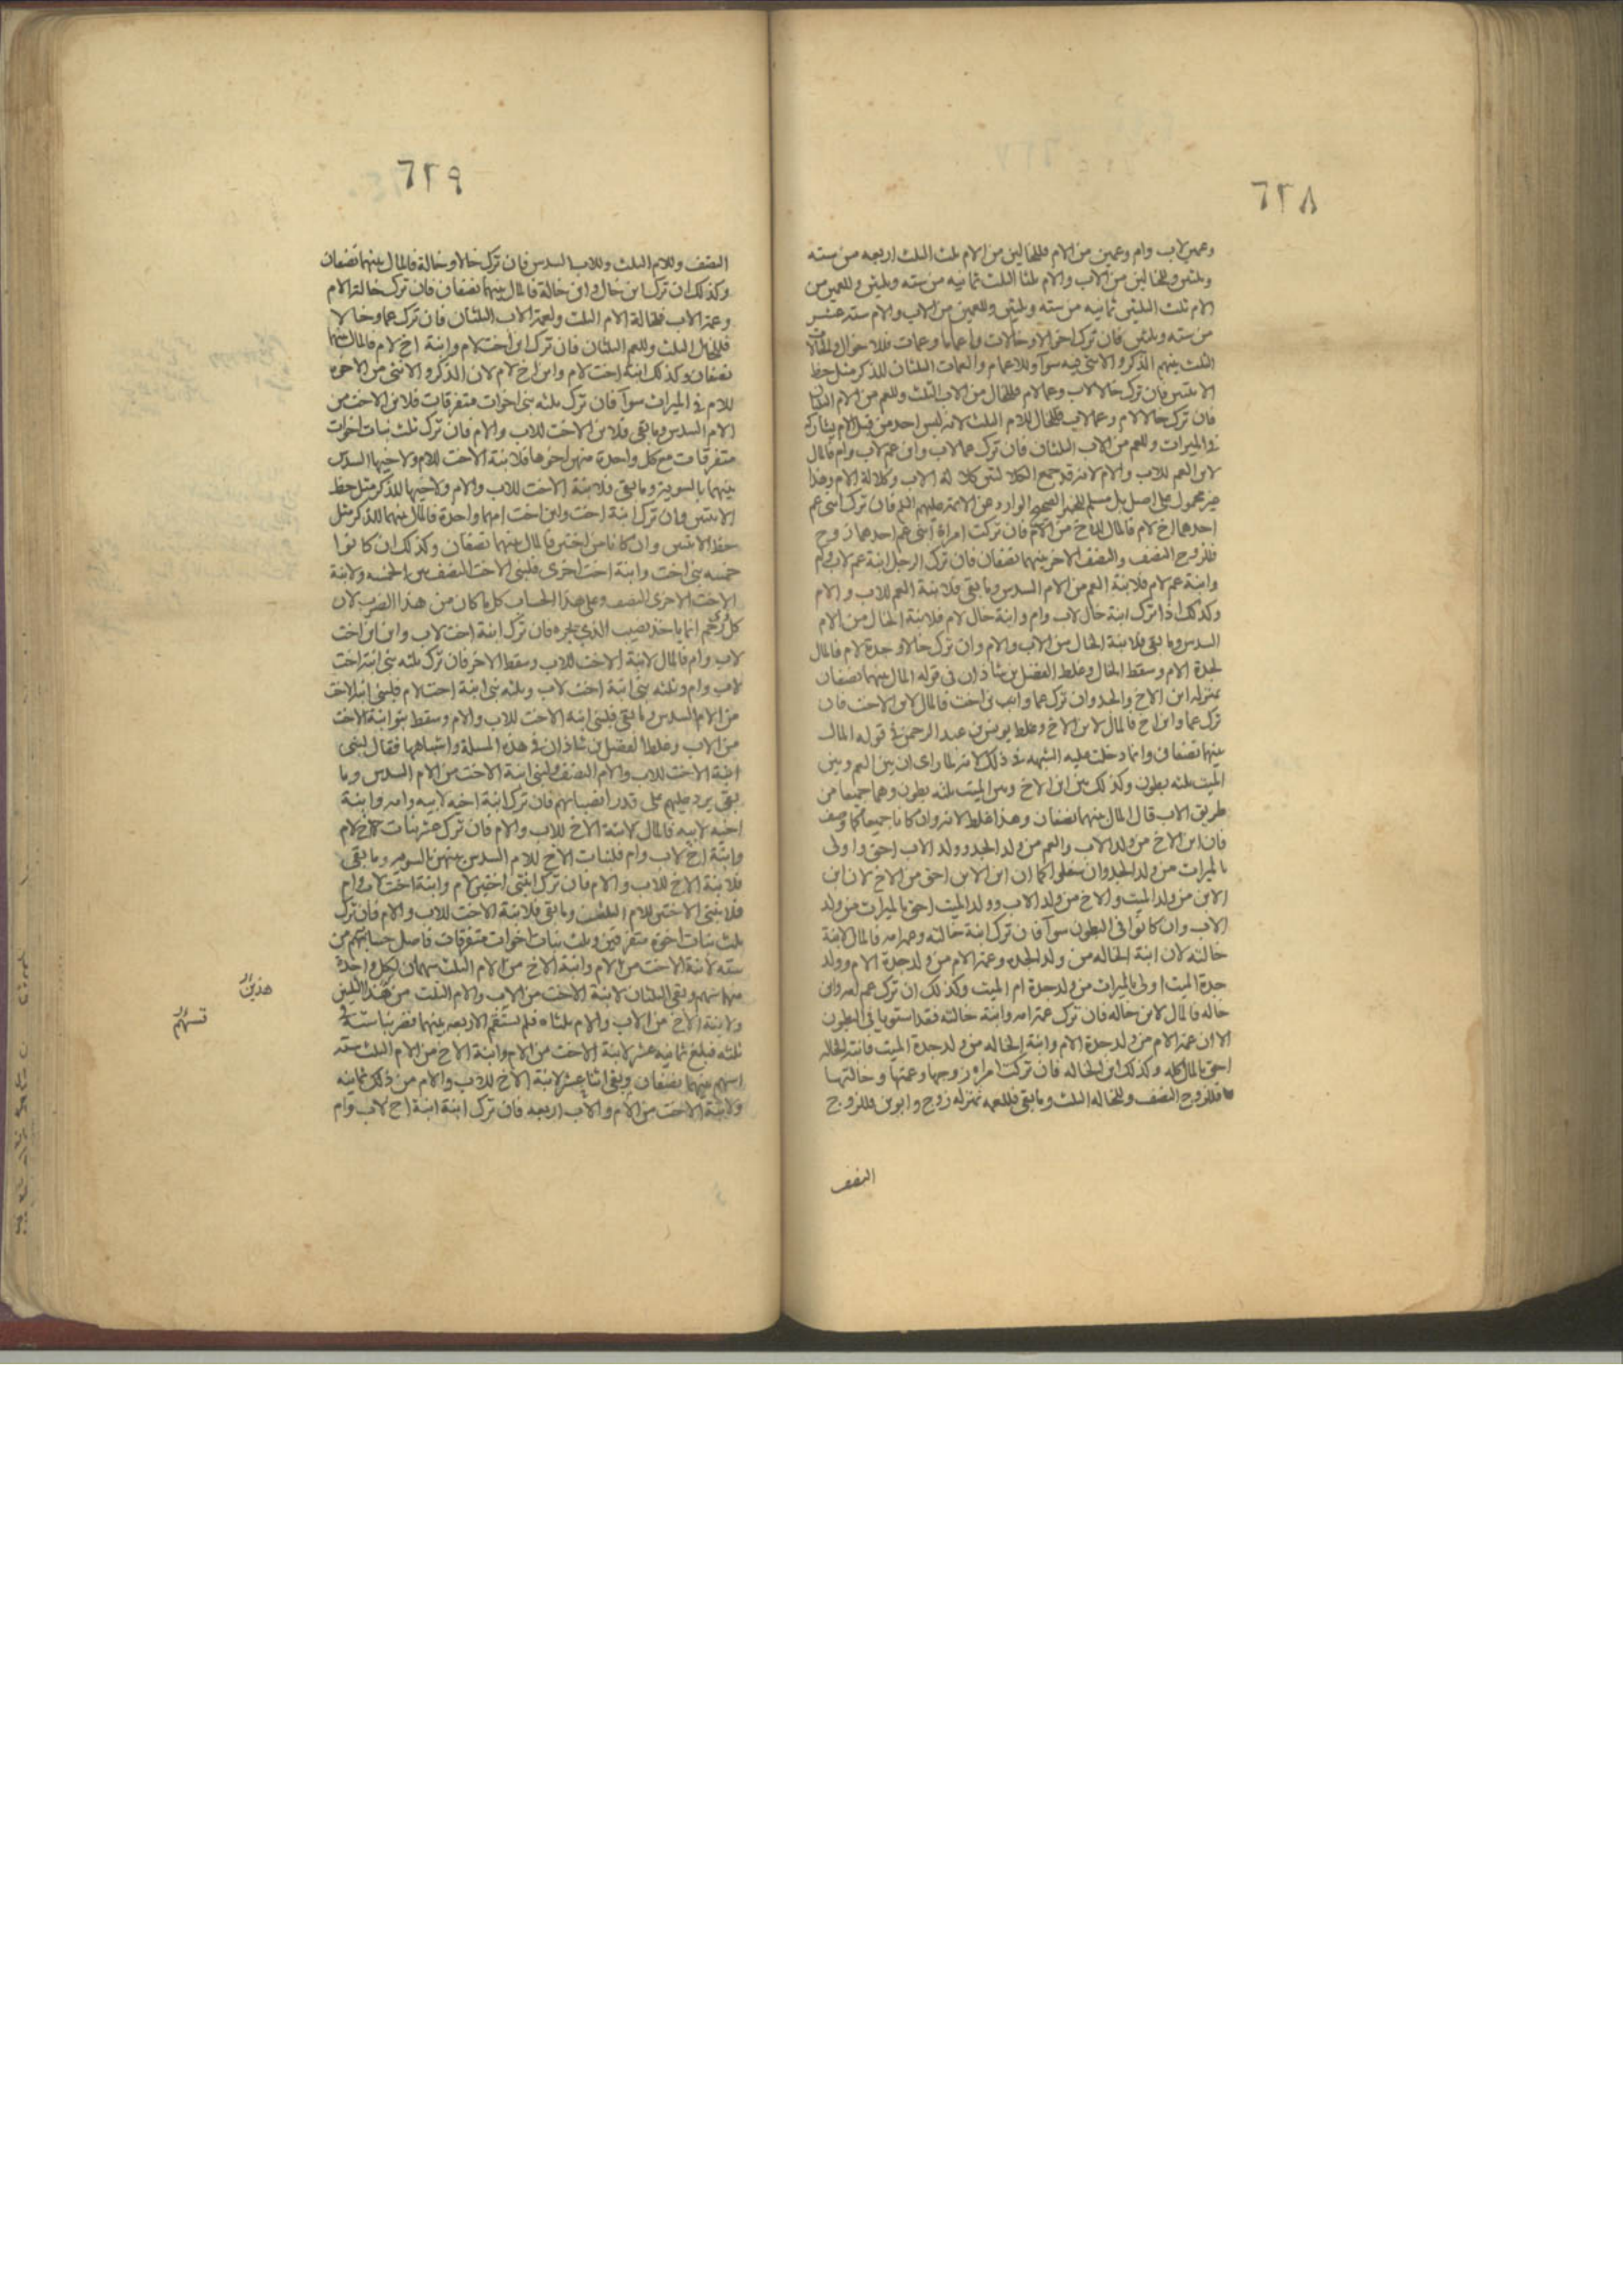 ٦٢٨
وعمين لاب وام وعمين من الام فللخالين من الام ثلث الثلث اربعه من سته
وثلثين وللخالين من الاب والام ثلثا الثلث ثمانيه من سته وثلثين وللعمين من
الام ثلث الثلثين ثمانيه من سته وثلثين وللعمين من الاب والام سته عشر
من سته وثلثين فان ترك اخوالا وخالات واعماما وعمات فللاخوال والخالات
الثلث بينهم الذكر والانثى فيه سوآ وللاعمام والعمات الثلثان للذكر مثل حظ
الانثيين فان ترك خالا لاب وعما لام فللخال من الاب الثلث وللعم من الام الثلثان
فان ترك خالا لام وعما لاب فللخال للام الثلث لانه ليس احد من قبل الام يشاركه
في الميراث وللعم من الاب الثلثان فان ترك عما لاب وابن عم لاب وام فالمال
لابن العم للاب والام لانه قد جمع الكلالتين كلالة الاب وكلالة الام وهذا
غير محمول على اصل بل مسلم للخبر الصحيح الوارد عن الائمة عليهم السلم فان ترك ابني عم
احدهما اخ لام فالمال للاخ من الام فان تركت امراة ابني عم احدهما زوج
فللزوج النصف والنصف الاخر بينهما نصفان فان ترك الرجل ابنة عم لاب وام
وابنة عم لام فلابنة العم من الام السدس وما بقى فلابنة العم للاب والام
وكذلك اذا ترك ابنة خال لاب وام وابنة خال لام فلابنة الخال من الام
السدس وما بقى فلابنة الخال من الاب والام وان ترك خالا وجدة لام فالمال
لجدة الام وسقط الخال وغلط الفضل بن شاذان في قوله المال بينهما نصفان
بمنزله ابن الاخ والجد وان ترك عما وابن اخت فالمال لابن الاخت فان
ترك عما وابن اخ فالمال لابن الاخ وغلط يونس بن عبد الرحمن في قوله المال
بينهما نصفان وانما دخلت عليه الشبهه في ذلك لانه لما راى ان بين العم وبين
الميت ثلثه بطون وكذلك بين ابن الاخ وبين الميت ثلثه بطون وهما جميعا من
طريق الاب قال المال بينهما نصفان وهذا غلط لانه وان كانا جميعا كما وصف
فان ابن الاخ من ولد الاب والعم من ولد الجد وولد الاب احق واولى
بالميراث من ولد الجد وان سفلوا كما ان ابن الابن احق من الاخ لان ابن
الابن من ولد الميت والاخ من ولد الاب وولد الميت احق بالميراث من ولد
الاب وان كانوا في البطون سوآ فان ترك ابنة خالته وعم امه فالمال لابنة
خالته لان ابنة الخاله من ولد الجده وعمة الام من ولد جدة الام وولد
جدة الميت اولى بالميراث من ولد جدة ام الميت وكذلك ان ترك عم امه وابن
خاله فالمال لابن خاله فان ترك عمة امه وابنة خالته فقد استويا في البطون
الا ان عمة الام من ولد جدة الام وابنة الخاله من ولد جدة الميت فابنة الخاله
احق بالمال كله وكذلك ابن الخاله فان تركت امراه زوجها وعمتها وخالتها
فللزوج النصف وللخاله الثلث وما بقى فللعمه بمنزله زوج وابوين فللزوج
النصف
٦٢٩
النصف وللام الثلث وللاب السدس فان ترك خالا وخالة فالمال بينهما نصفان
وكذلك ان ترك ابن خال وابن خالة فالمال بينهما نصفان فان ترك خالة الام
وعمة الاب فلخالة الام الثلث ولعمة الاب الثلثان فان ترك عما وخالا
فللخال الثلث وللعم الثلثان فان ترك ابن اخت لام وابنة اخ لام فالمال بينهما
نصفان وكذلك ابنة اخت لام وابن اخ لام لان الذكر والانثى من الاخوه
للام في الميراث سوآ فان ترك ثلثه بنى اخوات متفرقات فلابن الاخت من
الام السدس وما بقى فلابن الاخت للاب والام فان ترك ثلث بنات اخوات
متفرقات مع كل واحدة منهن اخوها فلابنة الاخت للام ولاخيها السدس
بينهما بالسوية وما بقى فلابنة الاخت للاب والام ولاخيها للذكر مثل حظ
الانثيين وان ترك ابنة اخت وابن اخت امهما واحدة فالمال بينهما للذكر مثل
حظ الانثيين وان كانا من اختين فالمال بينهما نصفان وكذلك ان كانوا
خمسه بنى اخت وابنة اخت اخرى فلبنى الاخت النصف بين الخمسه ولابنة
الاخت الاخرى النصف وعلى هذا الحساب كل ما كان من هذا الضرب لان
كل ذي رحم انما ياخذ نصيب الذي يجره فان ترك ابنة اخت لاب وابن ابن اخت
لاب وام فالمال لابنة الاخت للاب وسقط الاخر فان ترك ثلثه بنى ابنة اخت
لاب وام وثلثه بنى ابنة اخت لاب وثلثه بنى ابنة اخت لام فلبنى ابنة الاخت
من الام السدس وما بقى فلبنى ابنة الاخت للاب والام وسقط بنو ابنة الاخت
من الاب وغلط الفضل بن شاذان في هذه المسلة واشباهها فقال لبنى
ابنة الاخت للاب والام النصف ولبنى ابنة الاخت من الام السدس وما
بقى يرد عليهم على قدر انصبائهم فان ترك ابنة اخيه لابيه وامه وابنة
اخيه لابيه فالمال لابنة الاخ للاب والام فان ترك عشر بنات اخ لام
وابنة اخ لاب وام فلبنات الاخ للام السدس بينهن بالسويه وما بقى
فلابنة الاخ للاب والام فان ترك ابنتى اختين لام وابنة اخت لاب وام
فلابنتى الاختين للام الثلث وما بقى فلابنة الاخت للاب والام فان ترك
ثلث بنات اخوه متفرقين وثلث بنات اخوات متفرقات فاصل حسابهم من
سته لابنة الاخت من الام وابنة الاخ من الام الثلث سهمان لكل واحدة
منهما سهم وبقى الثلثان لابنة الاخت من الاب والام الثلث من هذا الثلثين
ولابنة الاخ من الاب والام ثلثاه فلم تستقم الاربعه بينهما فضربنا ستة في
ثلثه فبلغ ثمانيه عشر لابنة الاخت من الام وابنة الاخ من الام الثلث سته
اسهم بينهما نصفان وبقى اثنا عشر لابنة الاخ للاب والام من ذلك ثمانيه
ولابنة الاخت من الام والاب اربعه فان ترك ابنة ابنة اخ لاب وام
هذين